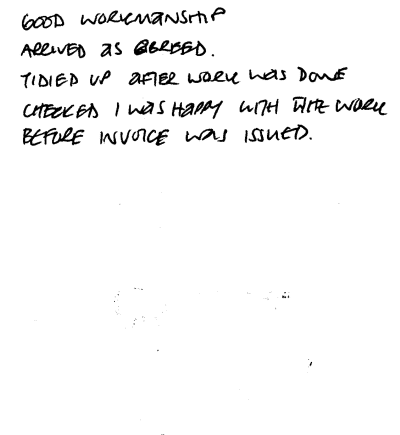 GOOD WORKMANSHIP
ARRIVED AS AGREED.
TIDIED UP AFTER WORK WAS DONE
CHECKED I WAS HAPPY WITH THE WORK
BEFORE INVOICE WAS ISSUED.